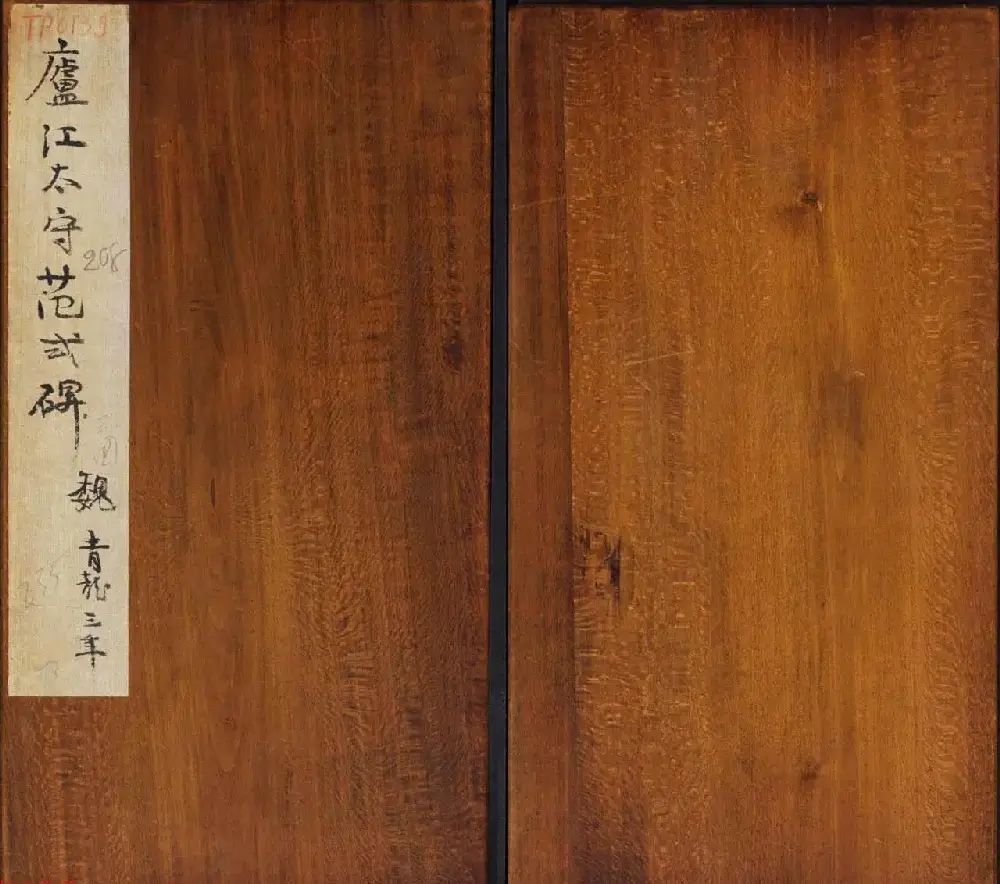 TP0139
廬江太守范式碑
208
魏青龍三年